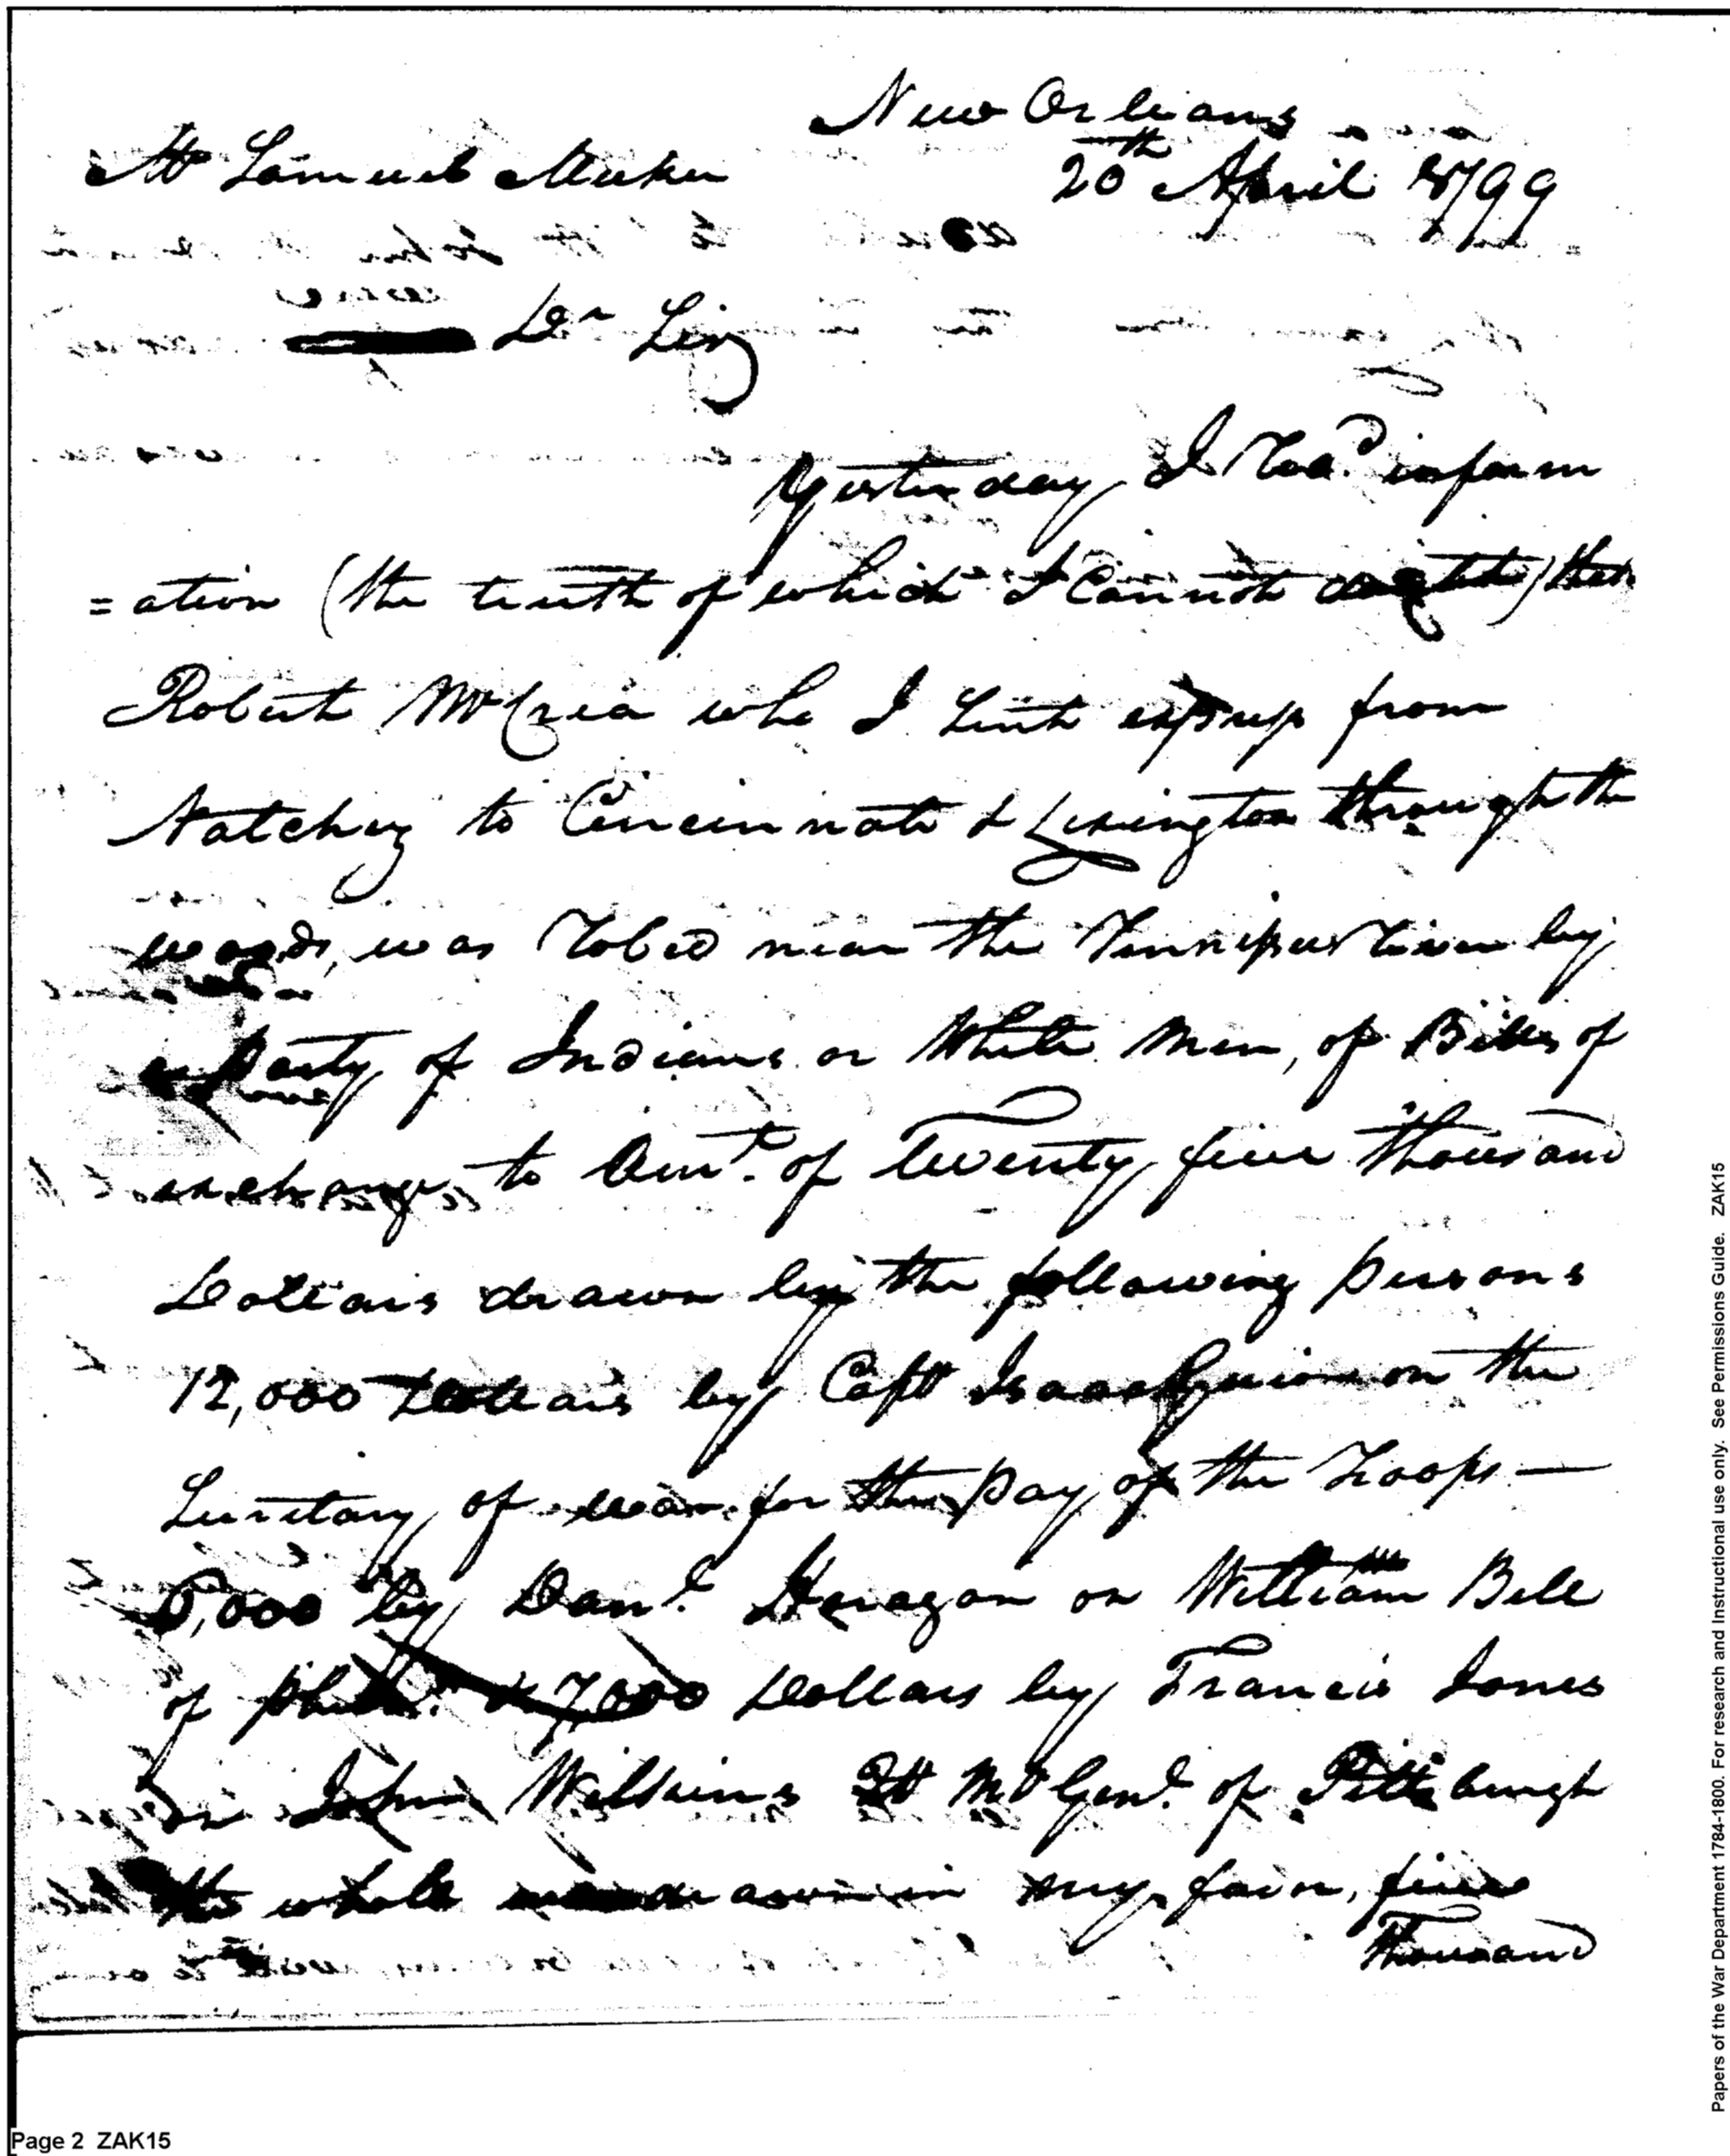 New Orleans
Mr Samuel Meeker 20th April 1799
Dr Sir
Yesterday I Recd inform
=ation (the truth of which I Cannot doubt) that
Robert McCrea who I Sent express from
Natchez to Cincinnati & Lexington through the
woods, was Robed near the Tennessee River by
a Party of Indians or White Men, of Bills of
exchange to Amt. of Twenty five thousand
Dollars drawn by the following persons
12,000 Dollars by Capt Isaac Guion on the
Secretary of war for the pay of the Troops —
6,000 by Danl. Haragan on William Bell
of Phila. & 7,000 Dollars by Francis Jones
on John Wilkins Qt Mr Genl. of Pittsburgh
the whole drawn in my favr, five
Thousand
Page 2 ZAK15
Papers of the War Department 1784-1800. For research and Instructional use only. See Permissions Guide. ZAK15